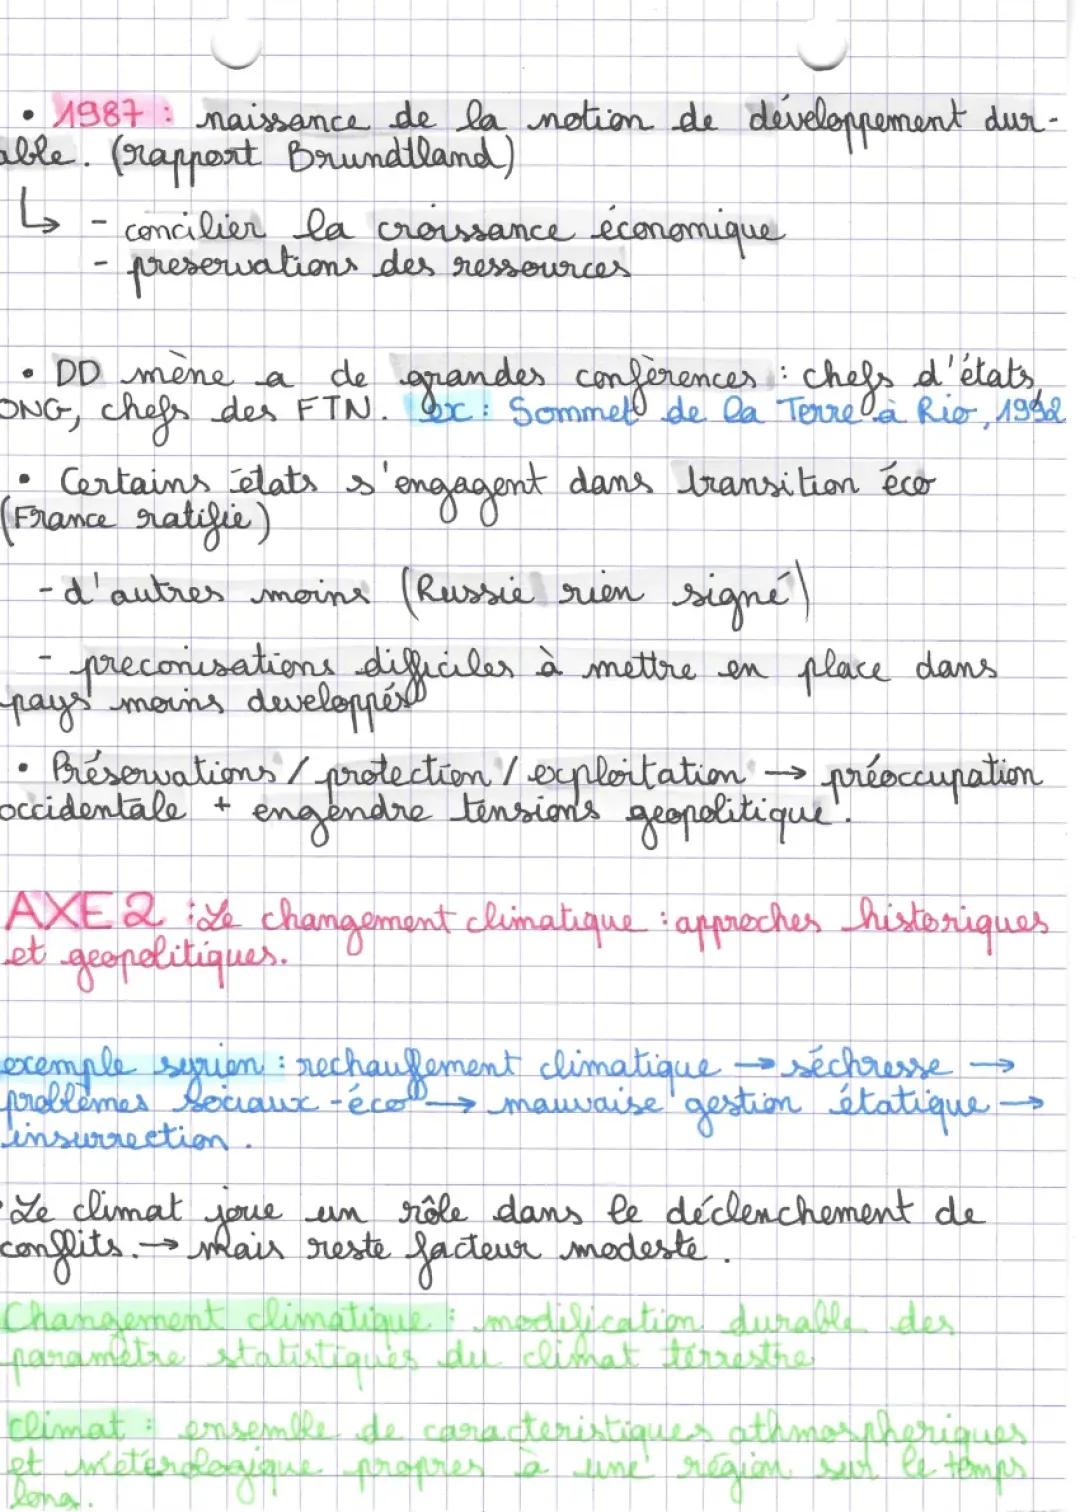 • 1987 : naissance de la notion de développement dur-
able. (rapport Brundtland)
↳ - concilier la croissance économique
- preservations des ressources
• DD mène a de grandes conférences : chefs d'états,
ONG, chefs des FTN. ex : Sommet de la Terre à Rio, 1992
• Certains états s'engagent dans transition éco
(France ratifie)
- d'autres moins (Russie rien signé)
- preconisations difficiles à mettre en place dans
pays moins developpés
• Préservations / protection / exploitation → préoccupation
occidentale + engendre tensions geopolitique.
AXE 2 : Le changement climatique : approches historiques
et geopolitiques.
exemple syrien : rechauffement climatique → séchresse →
problèmes sociaux-éco → mauvaise gestion étatique →
insurrection.
• Le climat joue un rôle dans le déclenchement de
conflits. → mais reste facteur modeste.
Changement climatique : modification durable des
paramètre statistiques du climat terrestre
climat : ensemble de caracteristiques athmospheriques
et météreologique propres à une région sur le temps
long.